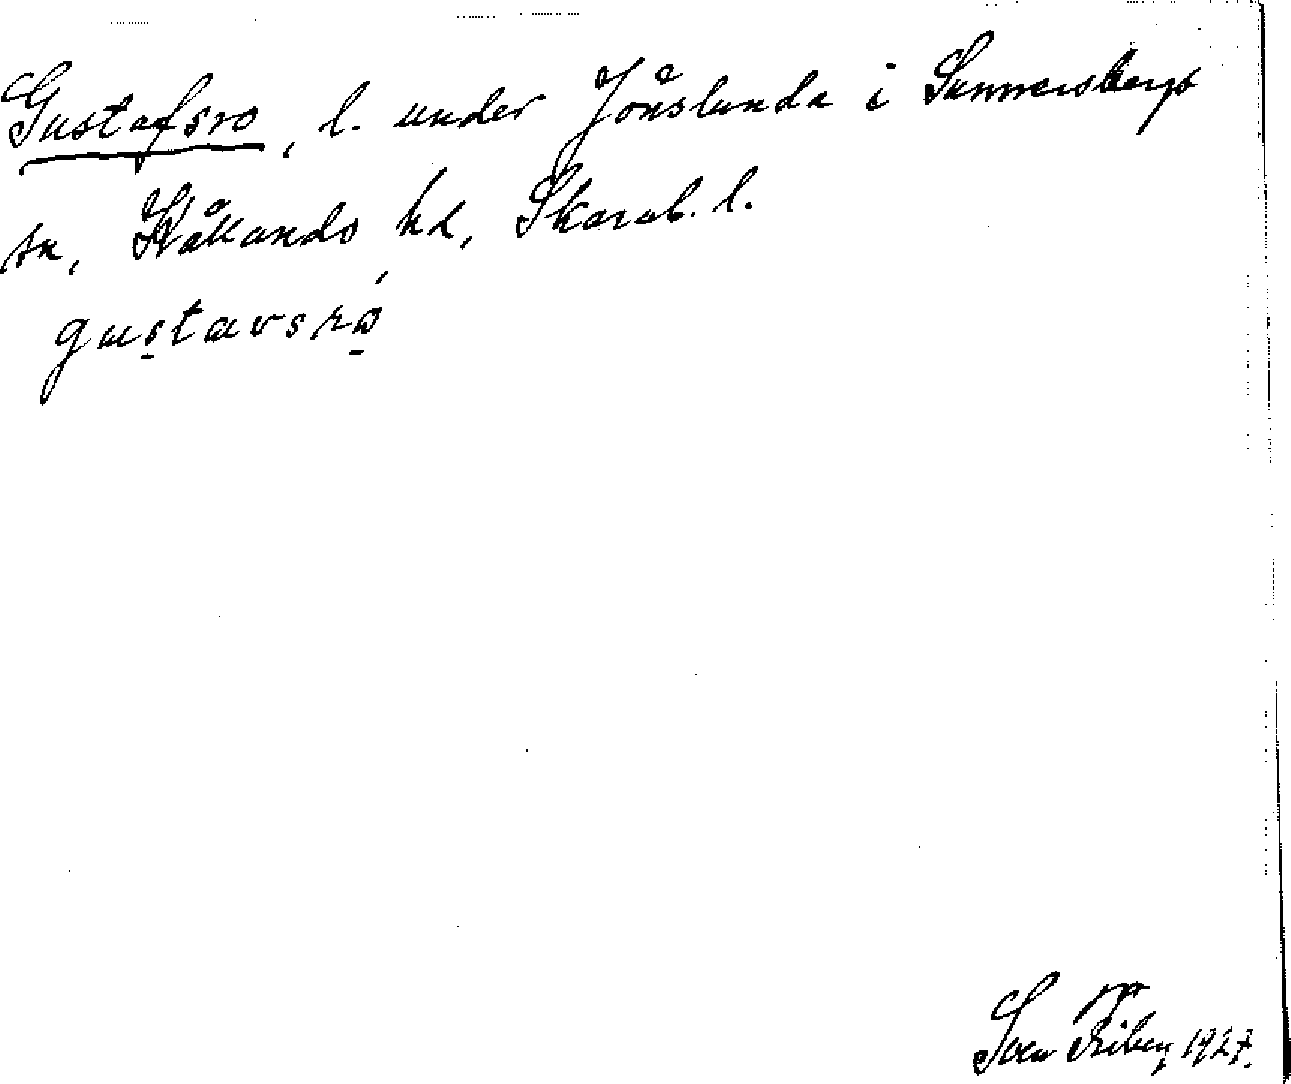 Gustafsro, l. under Jönslunda i Sunnersbergs
sn, Kållands hd, Skarab. l.
gustavsró
Sven Friberg 1927.